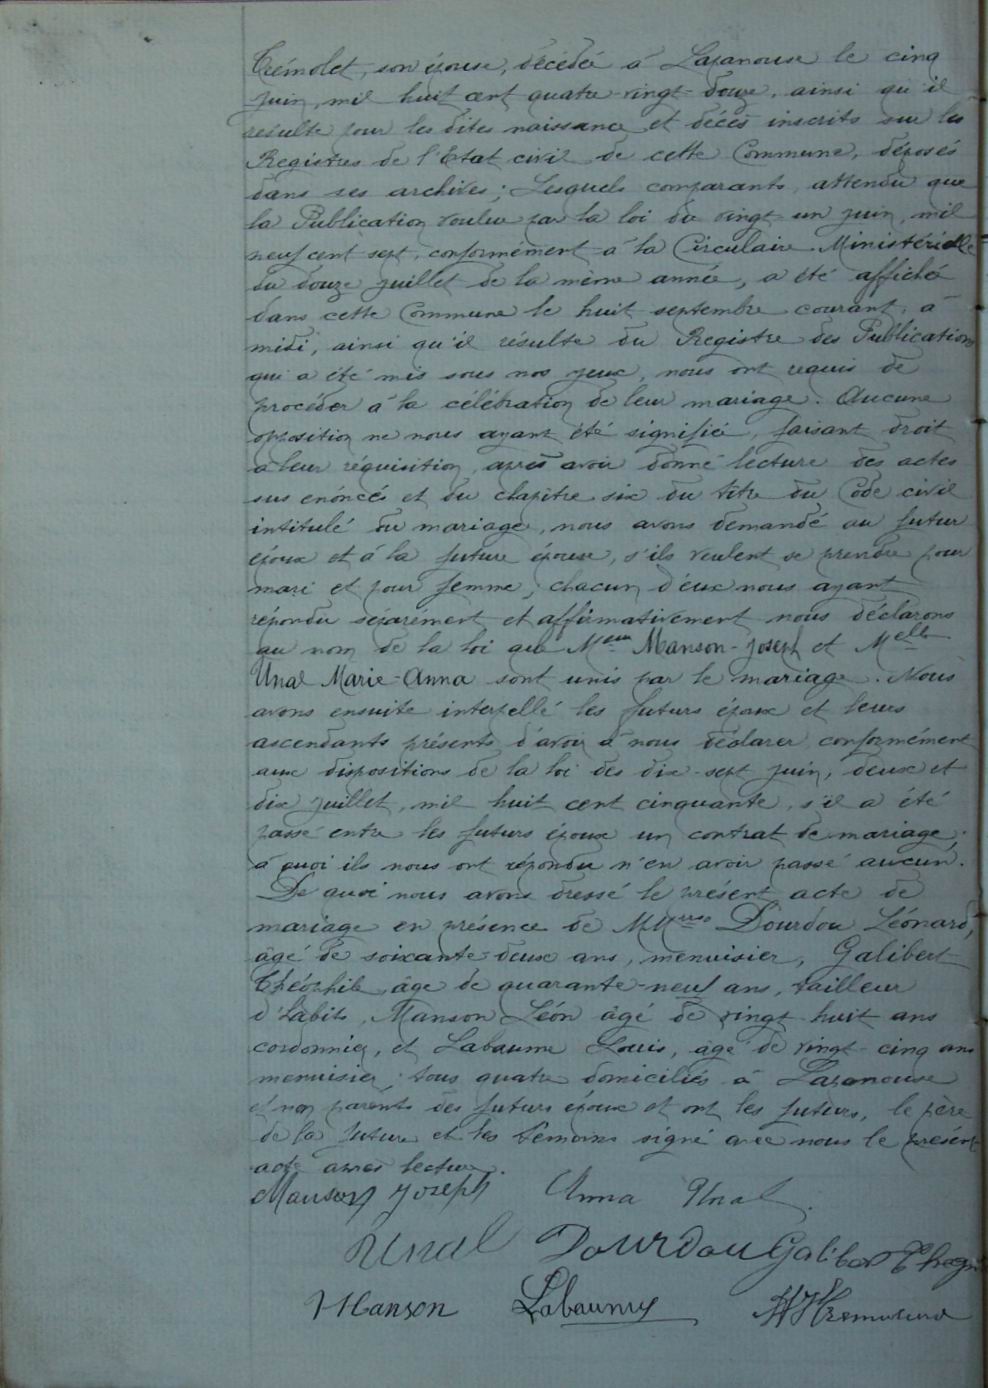 Trémolet, son épouse, décédée à Lapanouse le cinq
juin, mil huit cent quatre-vingt-douze, ainsi qu'il
résulte pour les dites naissance et décès inscrits sur les
Registres de l'Etat civil de cette Commune, déposés
dans ses archives ; Lesquels comparants, attendu que
la Publication voulue par la loi du vingt-un juin, mil
neuf cent sept, conformément à la Circulaire Ministérielle
du douze juillet de la même année, a été affichée
dans cette Commune le huit septembre courant, à
midi, ainsi qu'il résulte du Registre des Publications
qui a été mis sous nos yeux, nous ont requis de
procéder à la célébration de leur mariage. Aucune
opposition ne nous ayant été signifiée, faisant droit
à leur réquisition, après avoir donné lecture des actes
sus enoncés et du chapitre six du titre du Code civil
intitulé du mariage, nous avons demandé au futur
époux et à la future épouse, s'ils veulent se prendre pour
mari et pour femme, chacun d'eux nous ayant
répondu séparément et affirmativement nous déclarons
au nom de la loi que Manson-Joseph et Melle
Unal Marie-Anna sont unis par le mariage. Nous
avons ensuite interpellé les futurs époux et leurs
ascendants présents d'avoir à nous déclarer conformément
aux dispositions de la loi des dix-sept juin, deux et
dix juillet, mil huit cent cinquante, s'il a été
passé entre les futurs époux un contrat de mariage,
à quoi ils nous ont répondu n'en avoir passé aucun.
De quoi nous avons dressé le présent acte de
mariage en présence de Dourdou Léonard,
âgé de soixante-deux ans, menuisier, Galibert
Théophile, âge de quarante-neuf ans, tailleur
d'habits, Manson Léon âgé de vingt-huit ans
cordonnier, et Labaume Louis, âgé de vingt-cinq ans
menuisier ; tous quatre domiciliés à Lapanouse
et non parents des futurs époux et ont les futurs, le père
de la future et les témoins signé avec nous le présent
acte après lecture.
Manson Joseph Anna Unal
Unal Dourdou Galibert
Manson Labaume